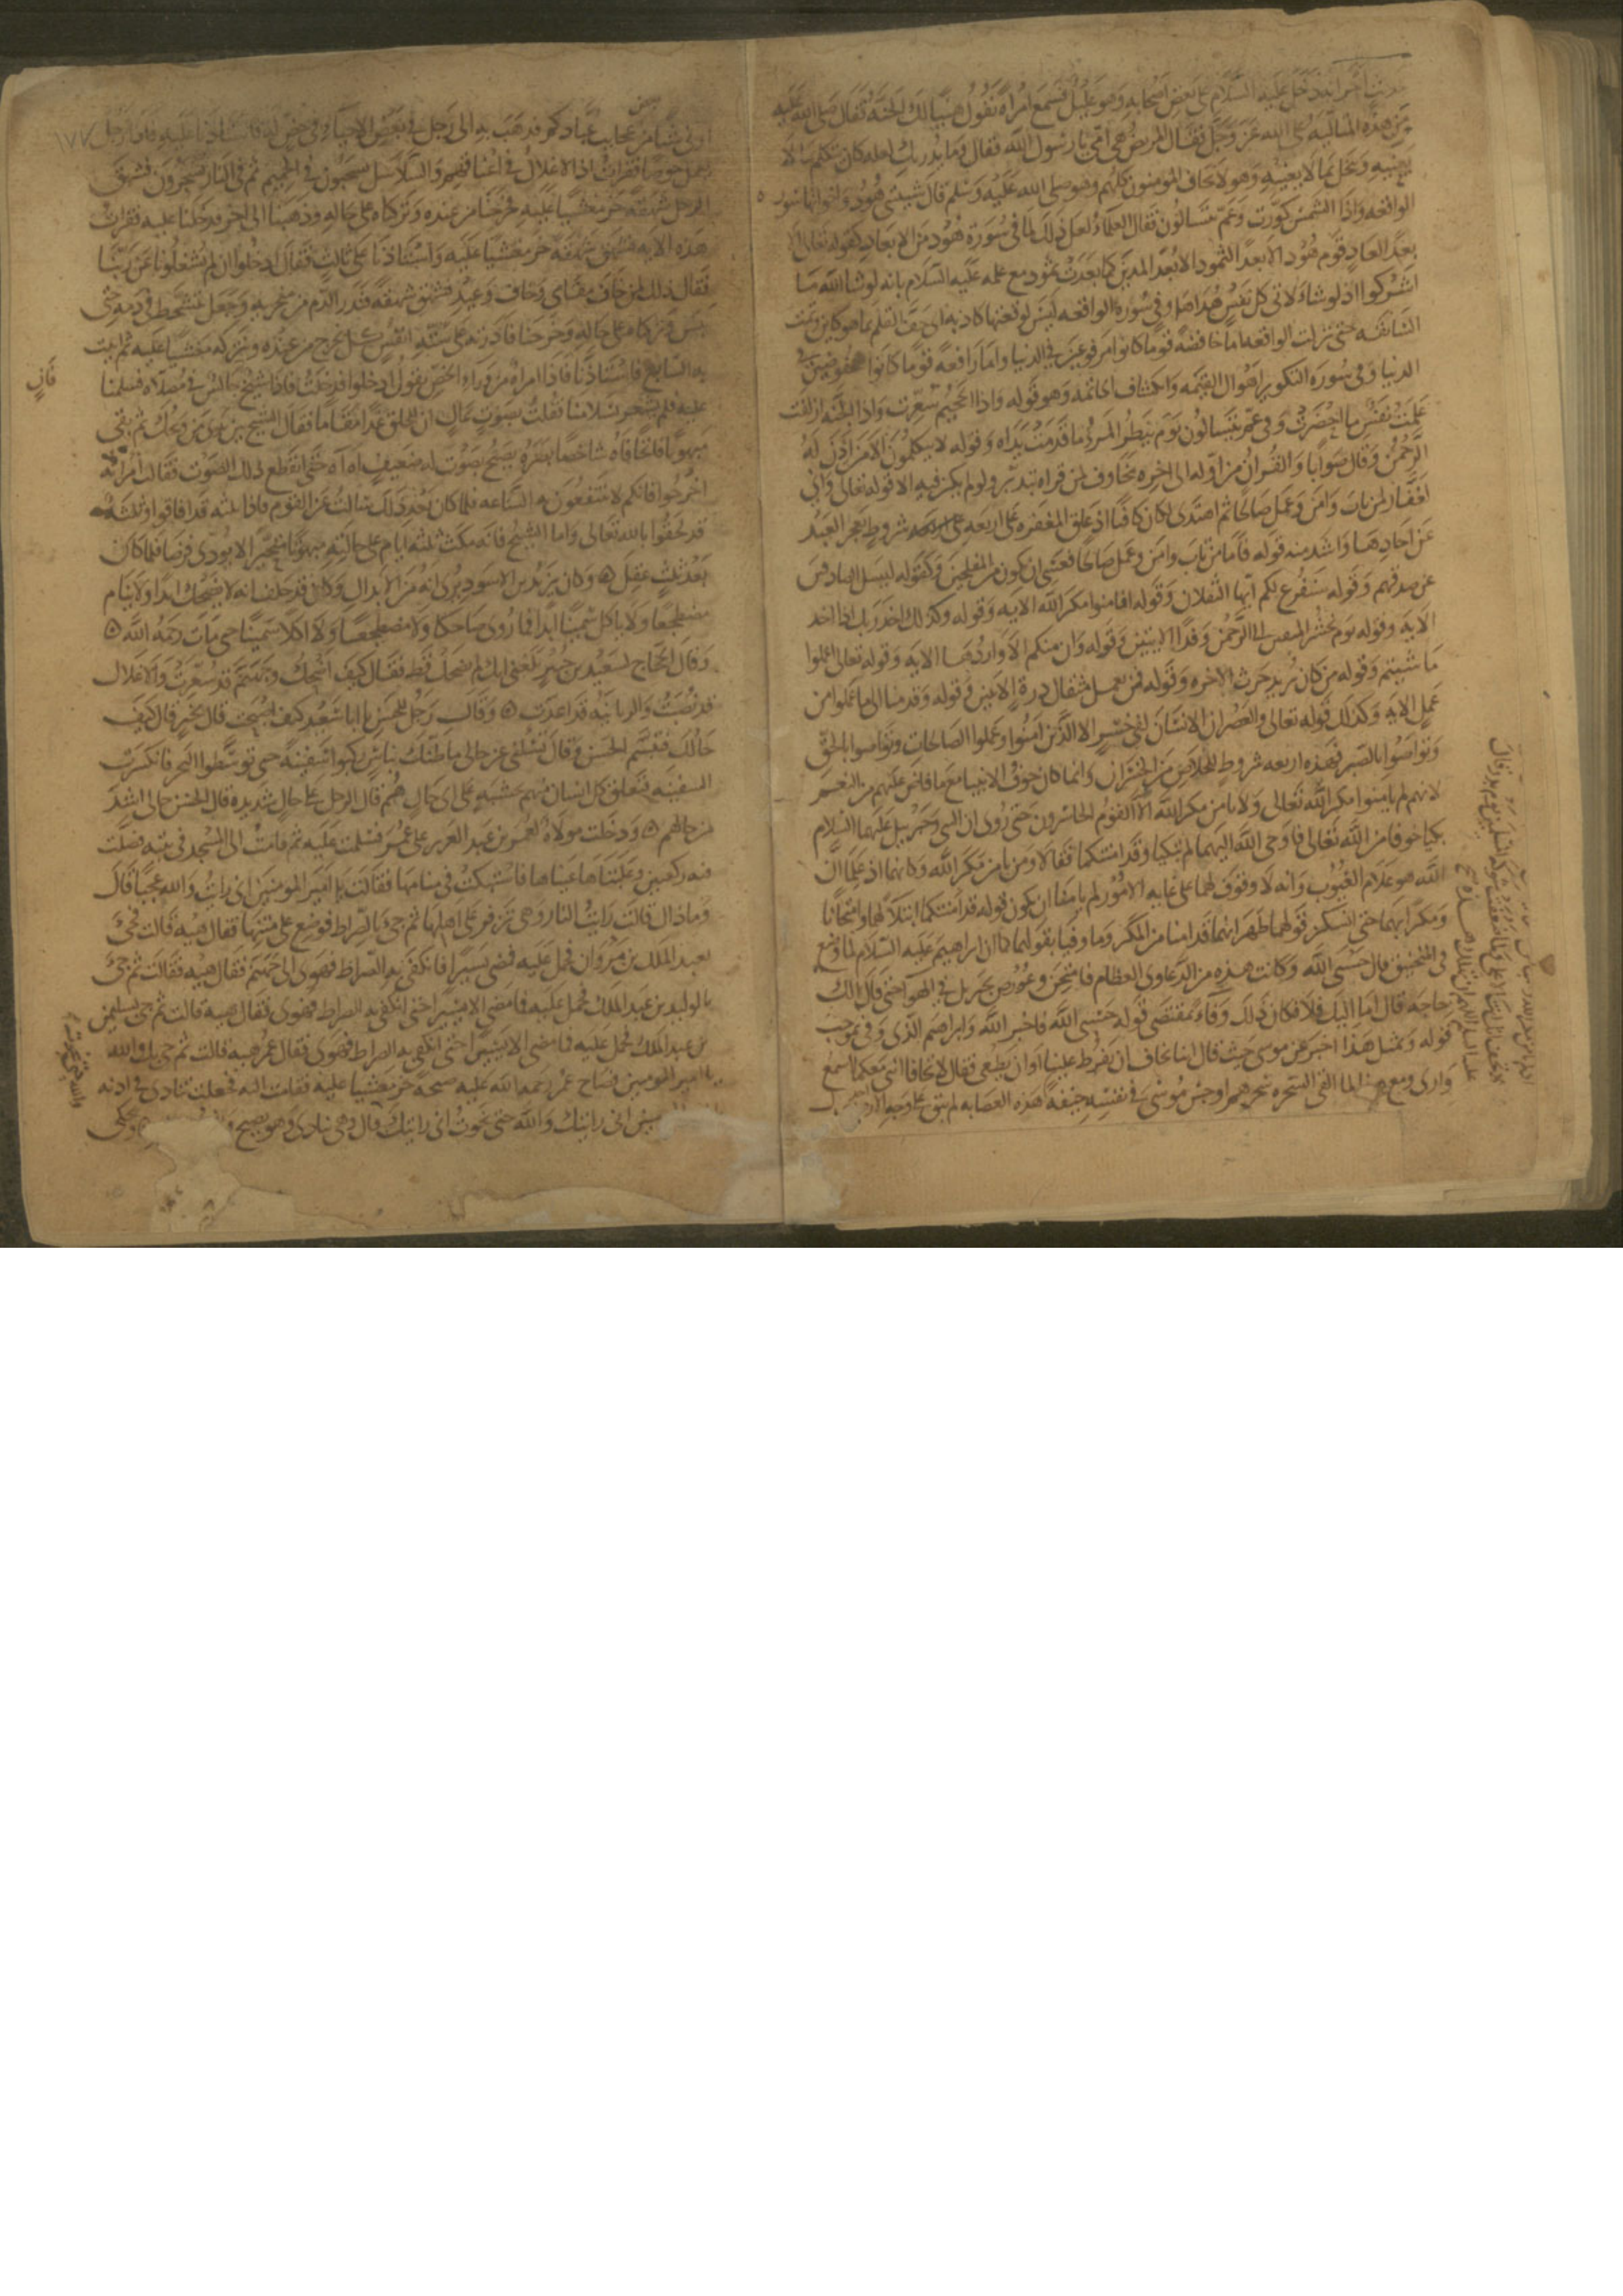 انه دخل عليه السلام على بعض اصحابه وهو عليل فسمع امراة تقول هنيا لك الجنة فقال صلى الله عليه
من هذه المتالية على الله عز وجل فقال المريض هى امى يا رسول الله فقال وما يدريك لعله كان يتكلم بما لا
يعنيه ويبخل بما لا يعنيه وهو لا يخاف المومنون كلهم وهو صلى الله عليه وسلم قال شيبتنى هود واخواتها سورة
الواقعه واذا الشمس كورت وعم يتسالون فقال العلماء لعل ذلك لما فى سورة هود من الابعاد كقوله تعالى الا
بعدا لعاد قوم هود الا بعدا لثمود الا بعدا لمدين كما بعدت ثمود مع علمه عليه السلام بانه لو شا الله ما
اشركوا اذ لو شاء لاتى كل نفس هداها وفى سورة الواقعه ليس لوقعتها كاذبه اى جف القلم بما هو كاين وتمت
السابقه حتى نزلت الواقعه اما خافضة قوما كانوا مرفوعين فى الدنيا واما رافعة قوما كانوا مخفوضين فى
الدنيا وفى سورة التكوير اهوال القيمه وانكشاف الخاتمه وهو قوله واذا الجحيم سعرت واذا الجنه ازلفت
علمت نفس ما احضرت وفى عم يتسالون يوم ينظر المرء ما قدمت يداه وقوله لا يتكلمون الا من اذن له
الرحمن وقال صوابا والقران من اوله الى اخره مخاوف لمن قراه بتدبر ولو لم يكن فيه الا قوله تعالى وانى
لغفار لمن تاب وامن وعمل صالحا ثم اهتدى لكان كافيا اذ علق المغفره على اربعه شروط يعجز العبد
عن احادها واشد منه قوله فاما من تاب وامن وعمل صالحا فعسى ان يكون من المفلحين وكقوله ليسل الصادقين
عن صدقهم وقوله سنفرغ لكم ايها الثقلان وقوله افامنوا مكر الله الايه وقوله وكذلك اخذ ربك اذا اخذ
الايه وقوله يوم نحشر المتقين الى الرحمن وفدا الايتين وقوله وان منكم الا واردها الايه وقوله تعالى اعملوا
ما شيتم وقوله من كان يريد حرث الاخره وقوله فمن يعمل مثقال ذرة الايتين وقوله وقدمنا الى ما عملوا من
عمل الايه وكذلك قوله تعالى والعصر ان الانسان لفى خسر الا الذين امنوا وعملوا الصالحات وتواصوا بالحق
وتواصوا بالصبر فهذه اربعه شروط للخلاص من الخسران وانما كان خوف الانبيا مع ما فاض عليهم من النعم
لانهم لم يامنوا مكر الله تعالى ولا يامن مكر الله الا القوم الخاسرون حتى روى ان النبى وجبريل عليهما السلام
بكيا خوفا من الله تعالى فاوحى الله اليهما لم تبكيا وقد امنتكما فقالا ومن يامن مكر الله وكانهما اذ علما ان
الله هو علام الغيوب وانه لا وقوف لهما على غايه الامور لم يامنا ان يكون قوله قد امنتكما ابتلاء لهما وامتحانا
ومكرا بهما حتى ان سكن خوفهما ظهر انهما قد امنا من المكر وما وفيا بقولهما كما ان ابراهيم عليه السلام لما وضع
فى المنجنيق قال حسبى الله وكانت هذه من الدعاوى العظام فامتحن وعورض بجبريل فى الهوا حتى قال الك
حاجة قال اما اليك فلا فكان ذلك وفاء بمقتضى قوله حسبى الله فاخبر الله وابراهيم الذى وفى بموجب
قوله وبمثل هذا اخبر عن موسى حيث قال اننا نخاف ان يفرط علينا او ان يطغى فقال لا تخافا اننى معكما اسمع
وارى ومع هذا لما القى السحره سحرهم اوجس موسى فى نفسه خيفة
هذه العصابه لم يبق على وجه الارض
اونى شيا من عجايب عبادكم فذهب به الى رجل فى بعض الاحيا فى خص له فاستاذنا عليه فاذا رجل
١٧٧
يعمل خوصا فقرات اذ الاغلال فى اعناقهم والسلاسل يسحبون فى الحميم ثم فى النار يسجرون فشهق
الرجل شهقة خر مغشيا عليه فخرجنا من عنده وتركناه على حاله وذهبنا الى اخر فدخلنا عليه فقرات
هذه الايه فشهق شهقه خر مغشيا عليه واستاذنا على ثالث فقال ادخلوا ان لم تشغلونا عن ربنا
فقال ذلك لمن خاف مقامى وخاف وعيد فشهق شهقة فدر الدم من منخريه وجعل يتشحط فى دمه حتى
يبس فتركناه على حاله وخرجنا فادرته على ستة انفس كل نخرج من عنده ونتركه مغشيا عليه ثم اتيت
به السابع فاستاذنا فاذا امراة من وراء الخص تقول ادخلوا فدخلت فاذا شيخ جالس فى مصلاه فسلمنا
فان
عليه فلم يشعر بسلامنا فقلت بصوت عال ان للخلق غدا مقاما فقال الشيخ بين يدى من ويحك ثم بقى
مبهوتا فاتحا فاه شاخصا بصره يصيح بصوت له ضعيف اه اه حتى انقطع ذلك الصوت فقالت امراته
اخرجوا فانكم لا تنتفعون به الساعه فلما كان بعد ذلك سالت عن القوم فاذا ثلثه قد افاقوا وثلثه
قد لحقوا بالله تعالى واما الشيخ فانه مكث ثلثه ايام على حالته مبهوتا متحيرا لا يودى فرضا فلما كان
بعد ثلث عقل وكان يزيد بن الاسود يرى انه من الابدال وكان قد حلف انه لا يضحك ابدا ولا ينام
مضطجعا ولا ياكل سمينا ابدا فما روى ضاحكا ولا مضطجعا ولا اكلا سمينا حتى مات رحمه الله
وقال الحجاج لسعيد بن جبير بلغنى انك لم تضحك قط فقال كيف اضحك وجهنم قد سعرت والاغلال
قد نصبت والزبانيه قد اعدت وقال رجل للحسن يا ابا سعيد كيف اصبحت قال بخير قال كيف
حالك فتبسم الحسن وقال تسلنى عن حالى ما ظنك بناس ركبوا سفينة حتى توسطوا البحر فانكسرت
السفينه فتعلق كل انسان منهم بخشبه على اى حال هم قال الرجل على حال شديده قال الحسن حالى اشد
من حالهم ودخلت مولاة لعمر بن عبد العزيز على عمر فسلمت عليه ثم قامت الى المسجد فى بيته فصلت
فيه ركعتين وغلبتها عيناها فاستبكت فى منامها فقالت يا امير المومنين انى رايت والله عجبا قال
وما ذاك قالت رايت النار وهى تزفر على اهلها ثم جى بالصراط فوضع على متنها فقال هيه قالت فجى
بعبد الملك بن مروان فحمل عليه فمضى يسيرا فانكفى به الصراط فهوى الى جهنم فقال هيه فقالت ثم جى
بالوليد بن عبد الملك فحمل عليه فما مضى الا يسيرا حتى انكفى به الصراط فهوى فقال هيه قالت ثم جى بسليمن
بن عبد الملك فحمل عليه فما مضى الا يسيرا حتى انكفى به الصراط فهوى فقال عمر هيه قالت ثم جى بك والله
يا امير المومنين فصاح عمر رحمه الله عليه صيحة خر مغشيا عليه فقامت اليه فجعلت تنادى فى اذنه
انى رايتك والله حتى نجوت انى رايتك قال وهى تنادى وهو يصيح